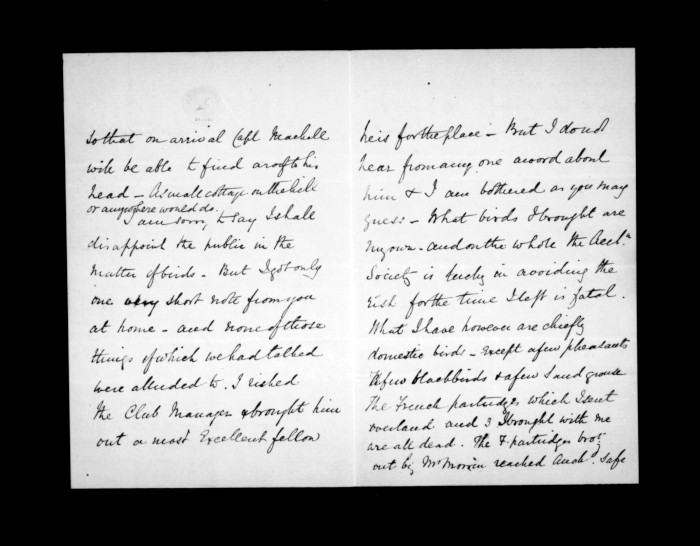 So that on arrival Capt Machell
will be able to find a roof to his
head – A small cottage on the hill
or anywhere would do.
I am sorry to say I shall
disappoint the public in the
matter of birds – But I got only
one very short note from you
at home – and none of those
things of which we had talked
were attended to. I risked
the Club Manager & brought him
out a most Excellent fellow
he is for the place – But I do not
hear from any one a word about
him & I am bothered as you may
guess – What birds I brought are
my own – and on the whole the Accln
Society is lucky in avoiding the
risk for the time I left is fatal.
What I have however are chiefly
domestic birds – Except a few pheasants
A few blackbirds & a few Sand grouse
The French partridges, which I sent
overland and 3 I brought with me
are all dead. The 7 partridges brot
out by Mr Morrin reached Auckd. safe